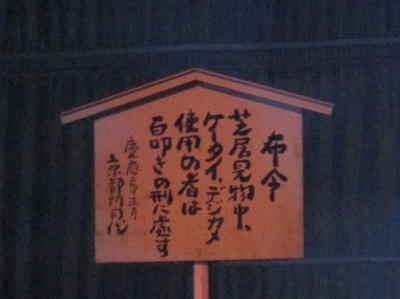 布令
芝居見物中、
ケータイ、デジカメ
使用の者は
百叩きの刑に處す
慶應三年正月
京都所司代